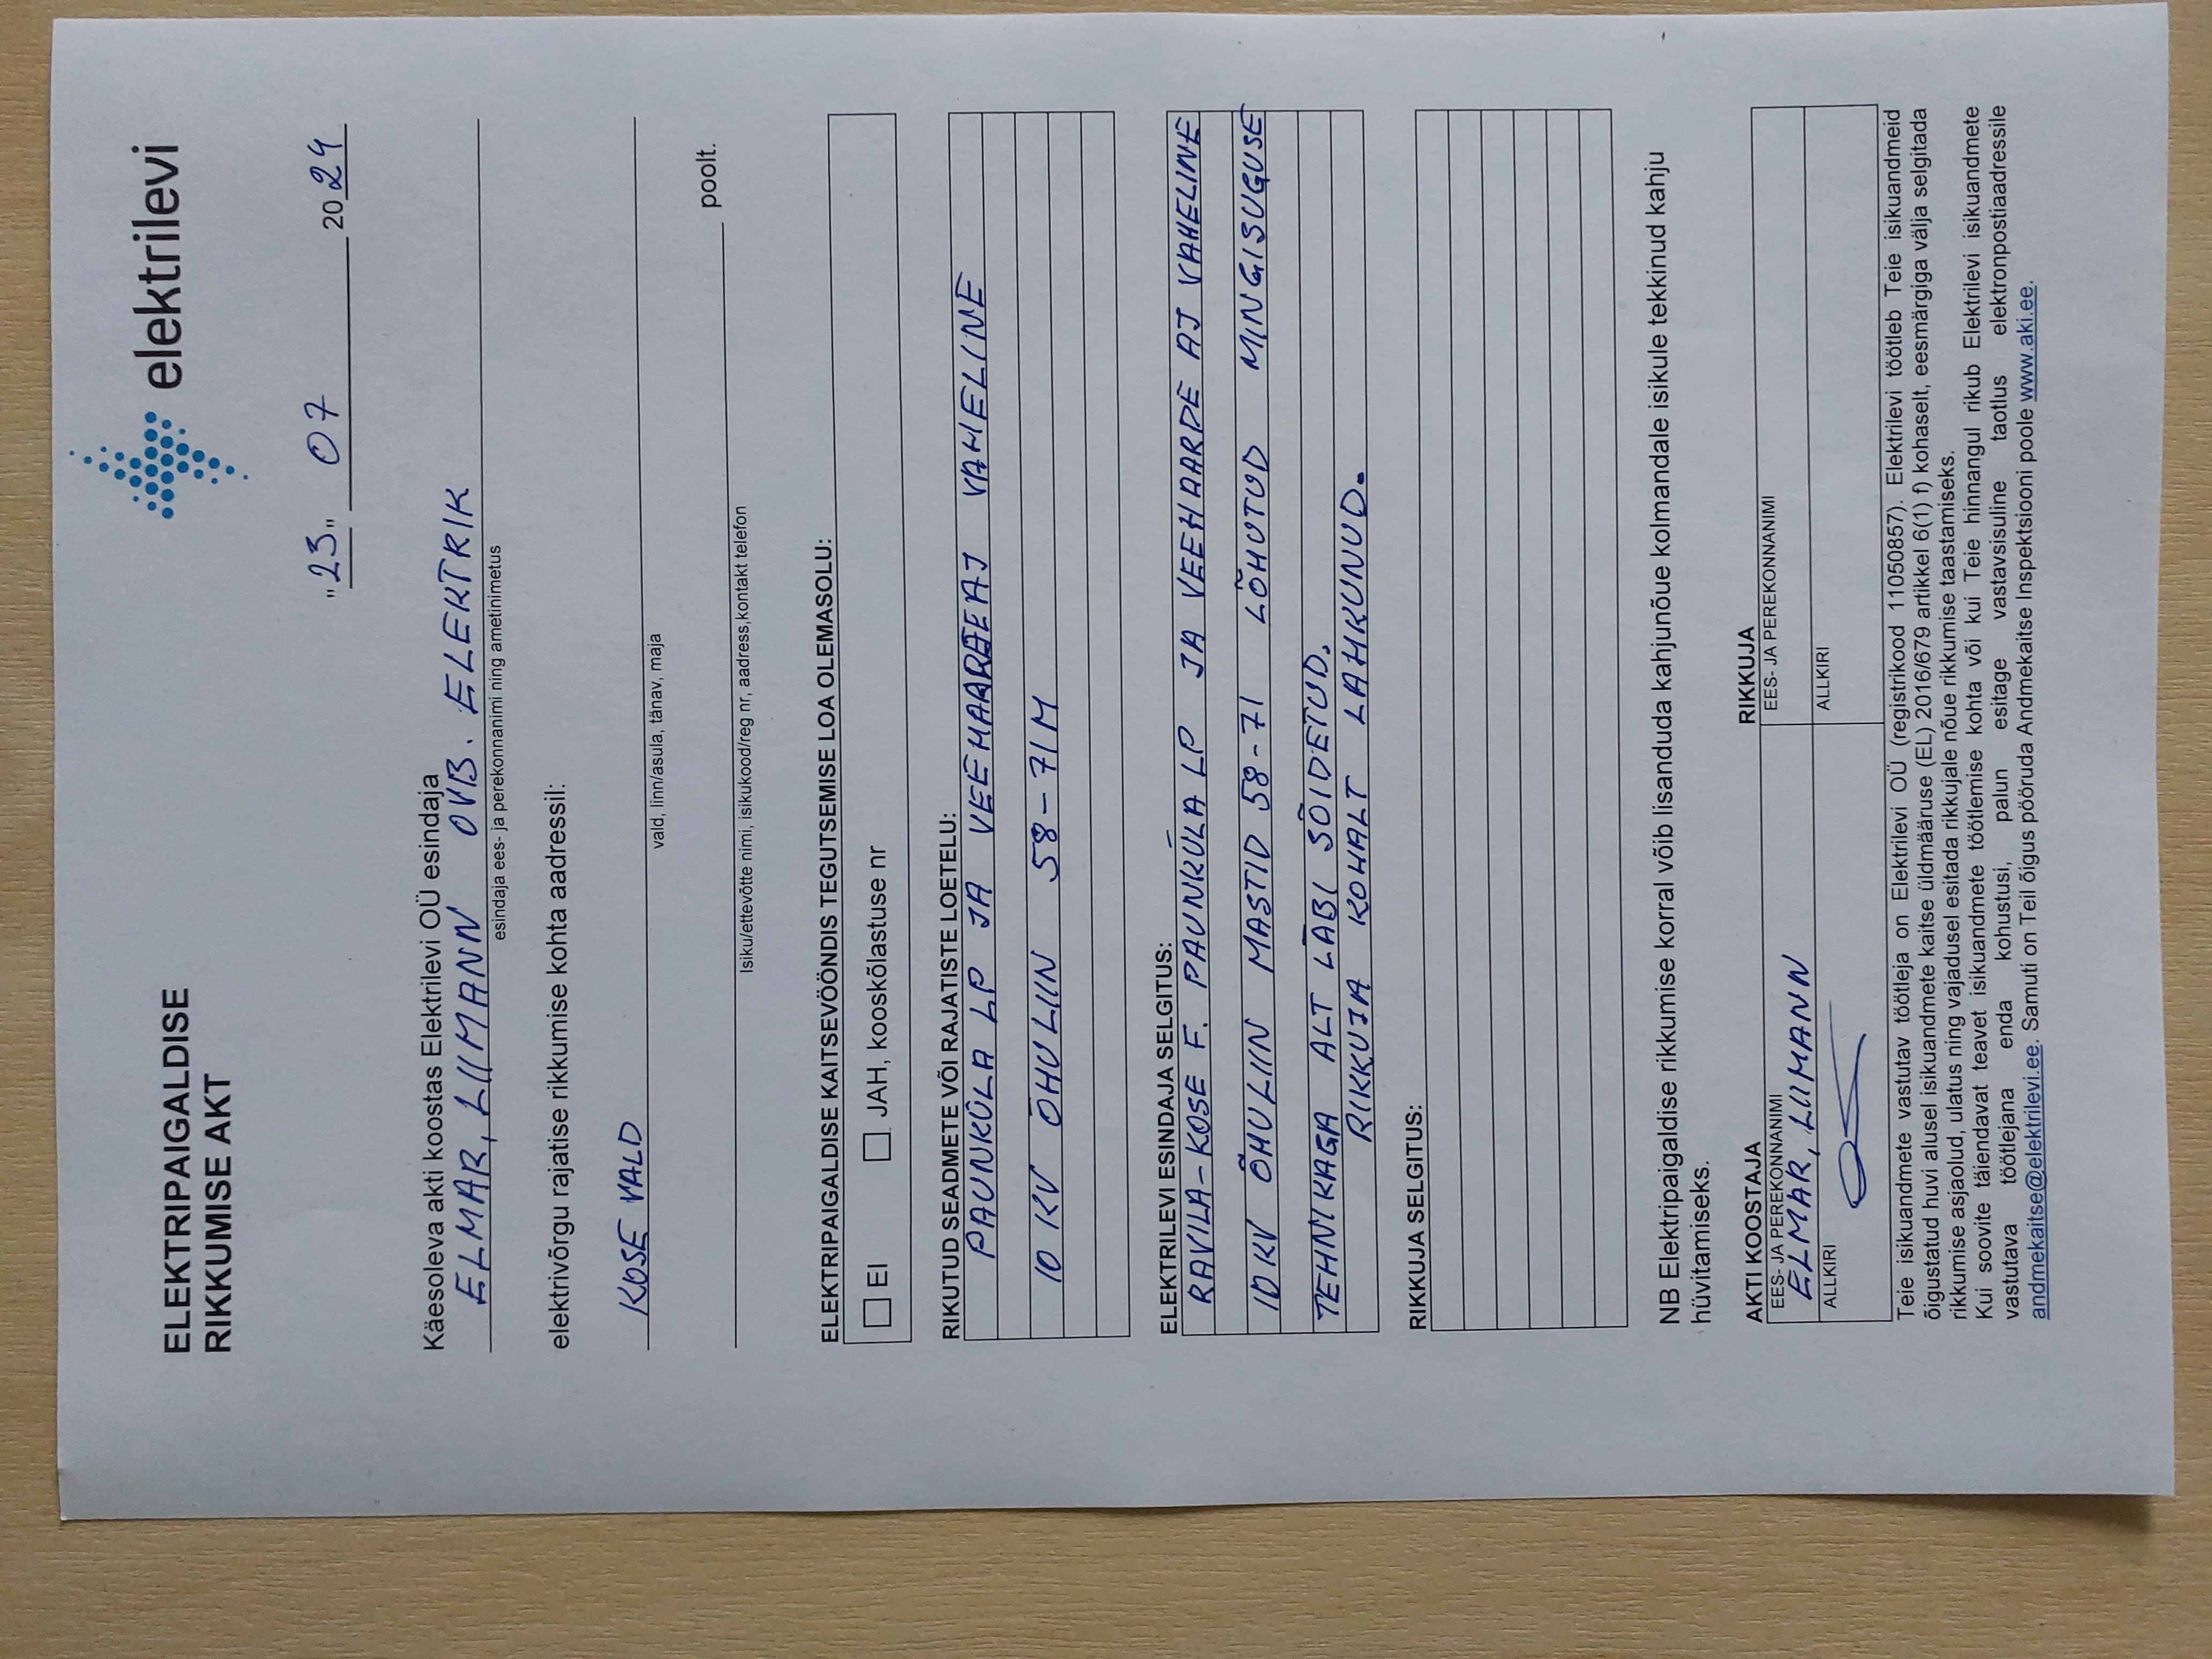 ELEKTRIPAIGALDISE
RIKKUMISE AKT
elektrilevi
"23" 07 2024
Käesoleva akti koostas Elektrilevi OÜ esindaja
ELMAR, LIIMANN OVB. ELEKTRIK
esindaja ees- ja perekonnanimi ning ametinimetus
elektrivõrgu rajatise rikkumise kohta aadressil:
KOSE VALD
vald, linn/asula, tänav, maja
poolt.
Isiku/ettevõtte nimi, isikukood/reg nr, aadress,kontakt telefon
ELEKTRIPAIGALDISE KAITSEVÖÖNDIS TEGUTSEMISE LOA OLEMASOLU:
EI JAH, kooskõlastuse nr
RIKUTUD SEADMETE VÕI RAJATISTE LOETELU:
PAUNKÜLA LP JA VAHELINE
10 KV ÕHULIIN 58-71M
ELEKTRILEVI ESINDAJA SELGITUS:
RAVILA-KOSE F. PAUNKÜLA LP JA VEEHAARDE AJ VAHELINE
10KV ÕHULIIN MASTID 58-71 LÕHUTUD MINGISUGUSE
TEHNIKAGA ALT LÄBI SÕIDETUD.
RIKKUJA KOHALT LAHKUNUD.
RIKKUJA SELGITUS:
NB Elektripaigaldise rikkumise korral võib lisanduda kahjunõue kolmandale isikule tekkinud kahju
hüvitamiseks.
AKTI KOOSTAJA RIKKUJA
EES- JA PEREKONNANIMI EES- JA PEREKONNANIMI
ELMAR, LIIMANN
ALLKIRI ALLKIRI
Teie isikuandmete vastutav töötleja on Elektrilevi OÜ (registrikood 11050857). Elektrilevi töötleb Teie isikuandmeid
õigustatud huvi alusel isikuandmete kaitse üldmääruse (EL) 2016/679 artikkel 6(1) f) kohaselt, eesmärgiga välja selgitada
rikkumise asjaolud, ulatus ning vajadusel esitada rikkujale nõue rikkumise taastamiseks.
Kui soovite täiendavat teavet isikuandmete töötlemise kohta või kui Teie hinnangul rikub Elektrilevi isikuandmete
vastutava töötlejana enda kohustusi, palun esitage vastavsisuline taotlus elektronpostiaadressile
andmekaitse@elektrilevi.ee. Samuti on Teil õigus pöörduda Andmekaitse Inspektsiooni poole www.aki.ee.